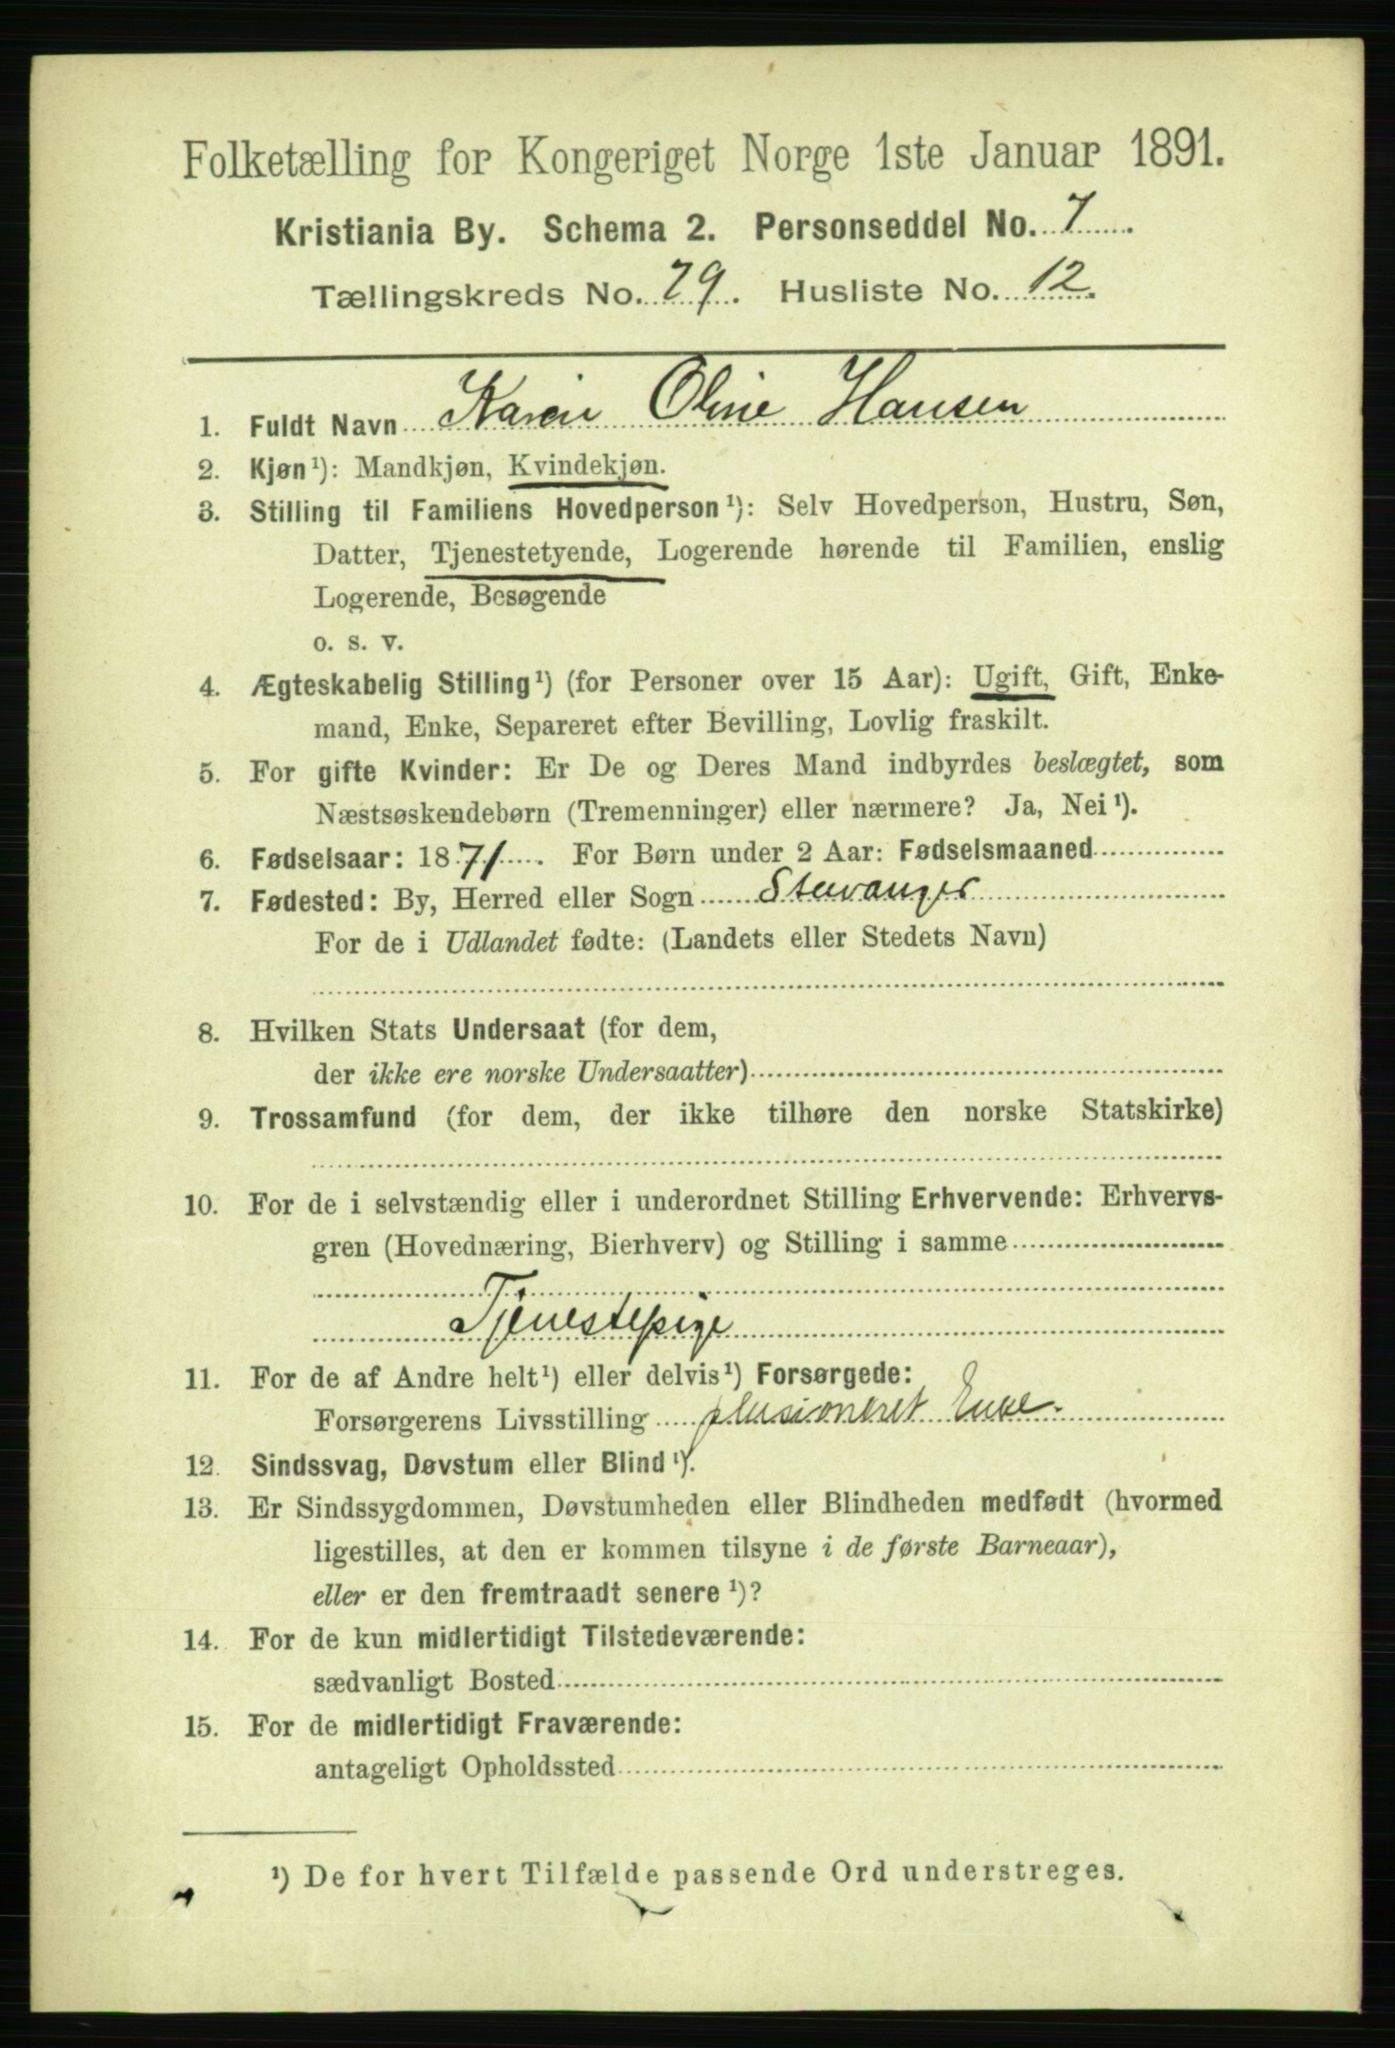 Folketælling for Kongeriget Norge 1ste Januar 1891.
Kristiania By. Schema 2. Personseddel No. 7.
Tællingskreds No. 79. Husliste No. 12.
1. Fuldt Navn Karen Oline Hansen
2. Kjøn¹): Mandkjøn, Kvindekjøn.
3. Stilling til Familiens Hovedperson¹): Selv Hovedperson, Hustru, Søn,
Datter, Tjenestetyende, Logerende hørende til Familien, enslig
Logerende, Besøgende
o. s. v.
4. Ægteskabelig Stilling¹) (for Personer over 15 Aar): Ugift, Gift, Enke-
mand, Enke, Separeret efter Bevilling, Lovlig fraskilt.
5. For gifte Kvinder: Er De og Deres Mand indbyrdes beslægtet, som
Næstsøskendebørn (Tremenninger) eller nærmere? Ja, Nei¹).
6. Fødselsaar: 1871. For Børn under 2 Aar: Fødselsmaaned
7. Fødested: By, Herred eller Sogn Stavanger
For de i Udlandet fødte: (Landets eller Stedets Navn)
8. Hvilken Stats Undersaat (for dem,
der ikke ere norske Undersaatter)
9. Trossamfund (for dem, der ikke tilhøre den norske Statskirke)
10. For de i selvstændig eller i underordnet Stilling Erhvervende: Erhvervs-
gren (Hovednæring, Bierhverv) og Stilling i samme
Tjenestepige
11. For de af Andre helt¹) eller delvis¹) Forsørgede:
Forsørgerens Livsstilling pensioneret Enke.
12. Sindssvag, Døvstum eller Blind¹).
13. Er Sindssygdommen, Døvstumheden eller Blindheden medfødt (hvormed
ligestilles, at den er kommen tilsyne i de første Barneaar),
eller er den fremtraadt senere¹)?
14. For de kun midlertidigt Tilstedeværende:
sædvanligt Bosted
15. For de midlertidigt Fraværende:
antageligt Opholdssted
¹) De for hvert Tilfælde passende Ord understreges.